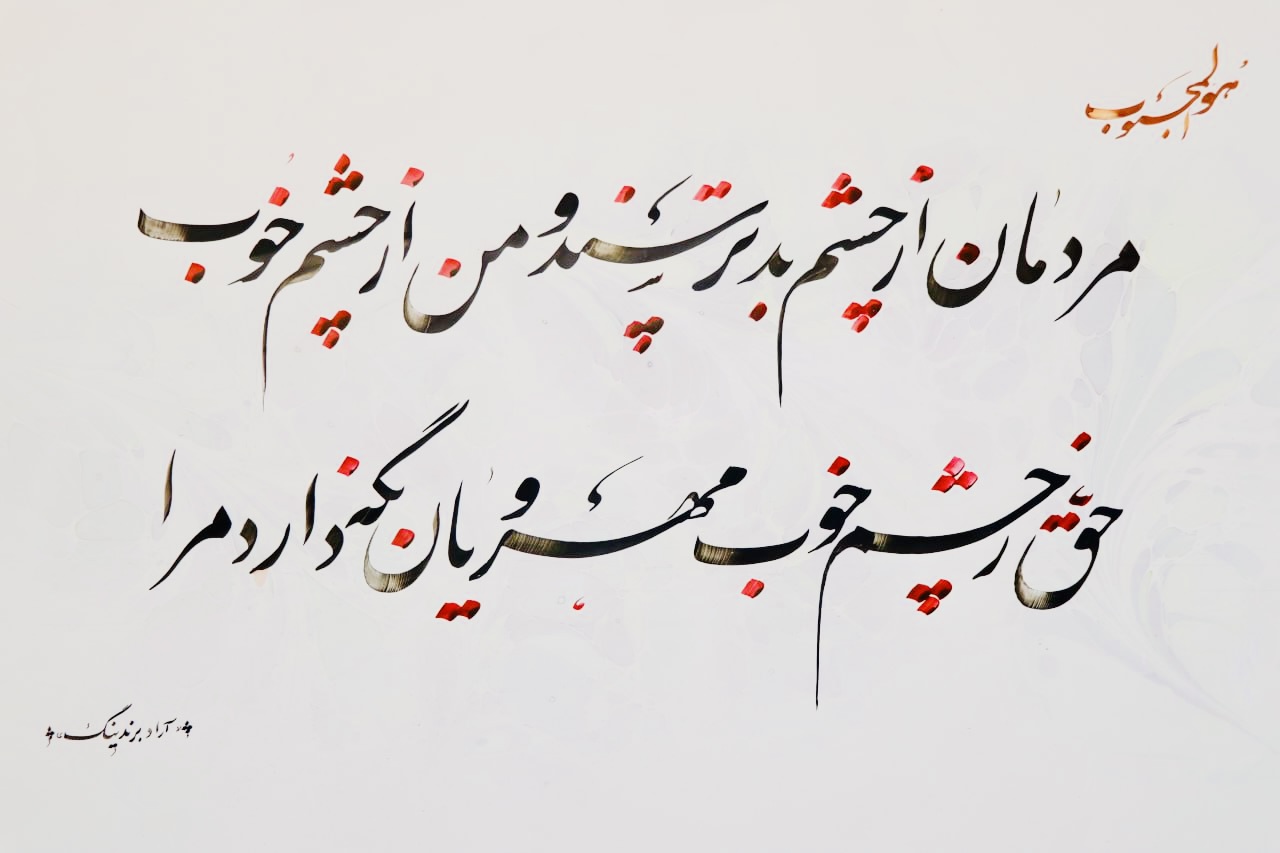 هوالمحبوب
مردمان از چشم بد ترسند و من از چشم خوب
حق ز چشم خوب مهرویان نگه دارد مرا
آراد برندینگ